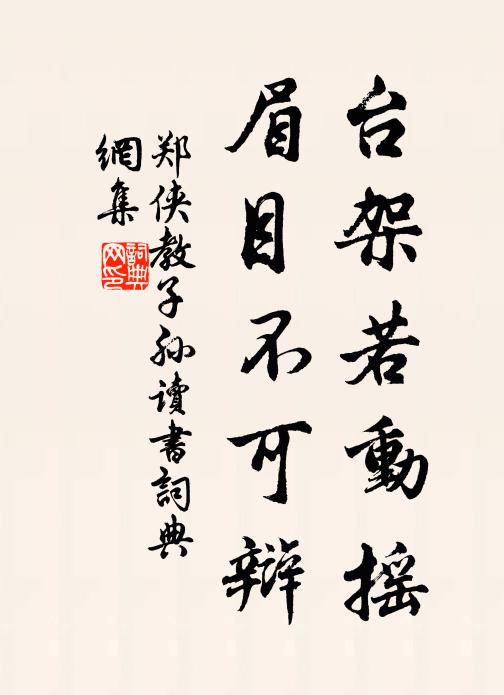 台架若動摇
眉目不可辯
郑侠教子孙读書詞典
網集
詞典网印